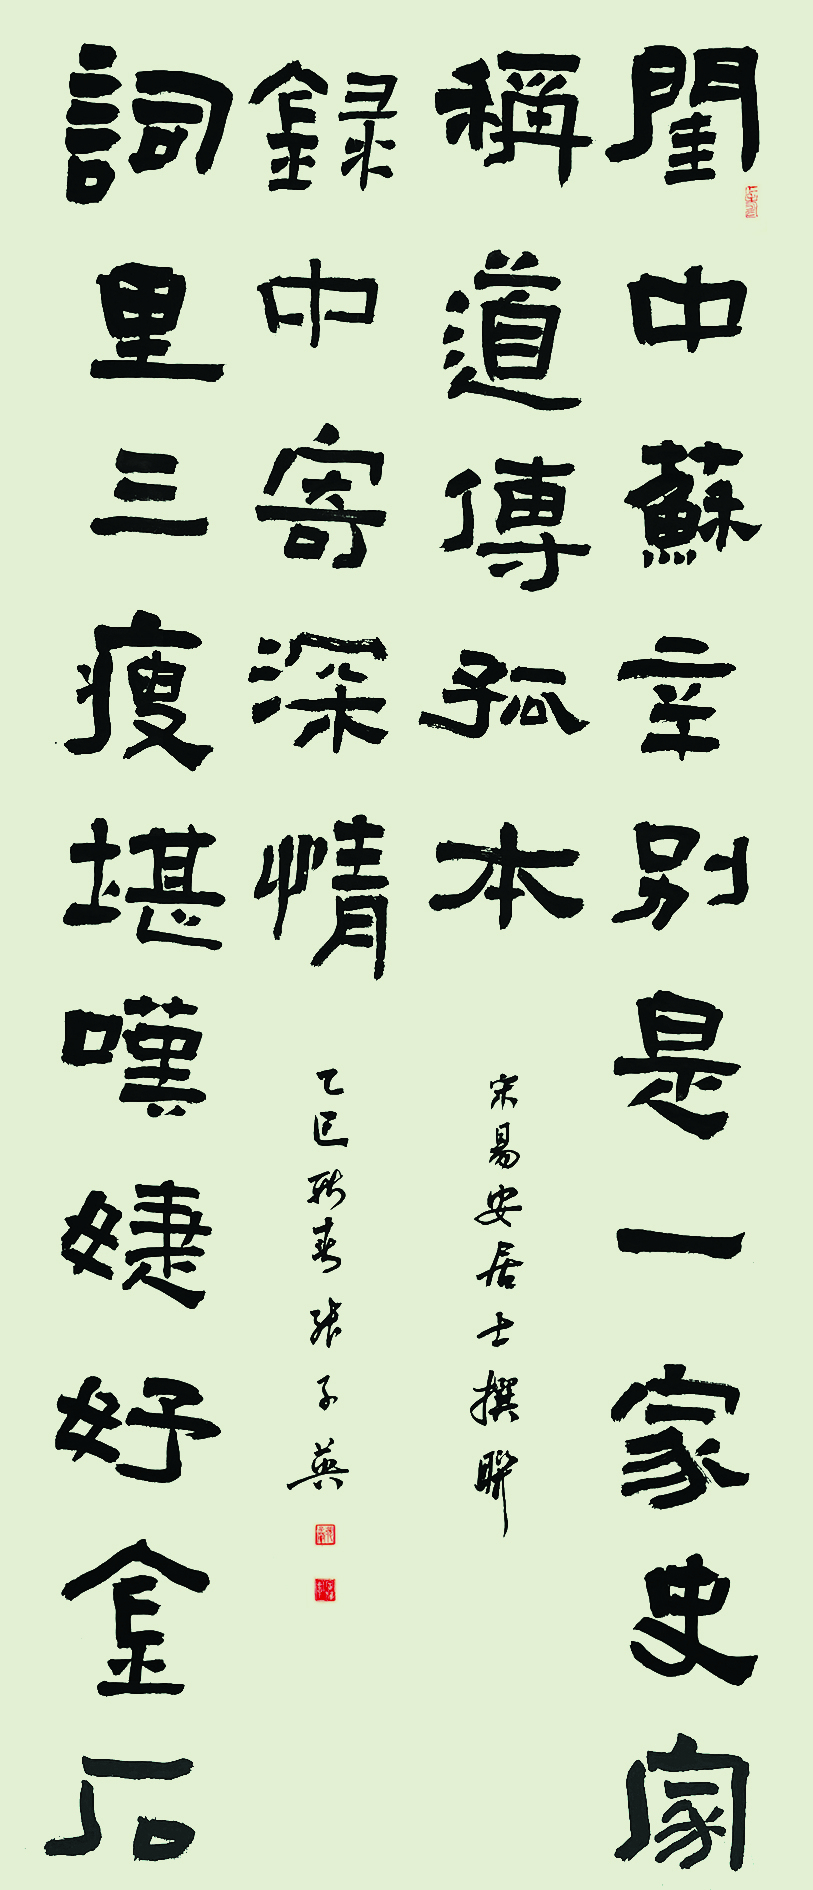 閨中蘇辛别是一家史家
稱道傳孤本
宋易安居士撰聯
詞里三瘦堪嘆婕妤金石
録中寄深情
乙巳新春張子英